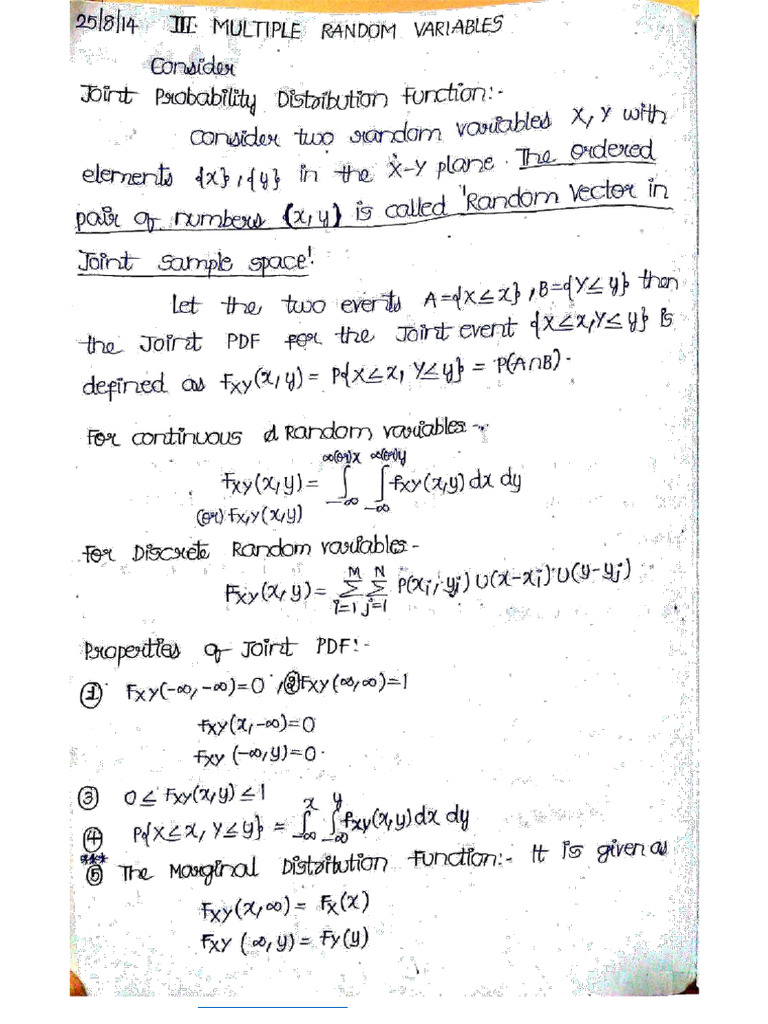 25/8/14 III. MULTIPLE RANDOM VARIABLES
Consider
Joint Probability Distribution Function:-
consider two random variables X, Y with
elements {x}, {y} in the X-Y plane. The ordered
pair of numbers (x,y) is called 'Random Vector in
Joint sample space'.
Let the two events A={X≤x}, B={Y≤y} then
the Joint PDF for the Joint event {X≤x,Y≤y} is
defined as FXY(x,y) = P{X≤x, Y≤y} = P(A∩B).
For continuous Random variables:-
∞(or)x ∞(or)y
FXY(x,y) = ∫ ∫ fXY(x,y) dx dy
-∞ -∞
(or) FX,Y(x,y)
For Discrete Random variables:-
M N
FXY(x,y) = Σ Σ P(xi, yj) U(x-xi).U(y-yj)
i=1 j=1
Properties of Joint PDF:-
① FXY(-∞,-∞)=0, ② FXY(∞,∞)=1
FXY(x,-∞)=0
FXY(-∞,y)=0.
③ 0≤FXY(x,y)≤1
x y
④ P{X≤x, Y≤y} = ∫ ∫ fXY(x,y) dx dy
-∞ -∞
***
⑤ The Marginal Distribution Function:- It is given as
FXY(x,∞) = FX(x)
FXY(∞,y) = FY(y)